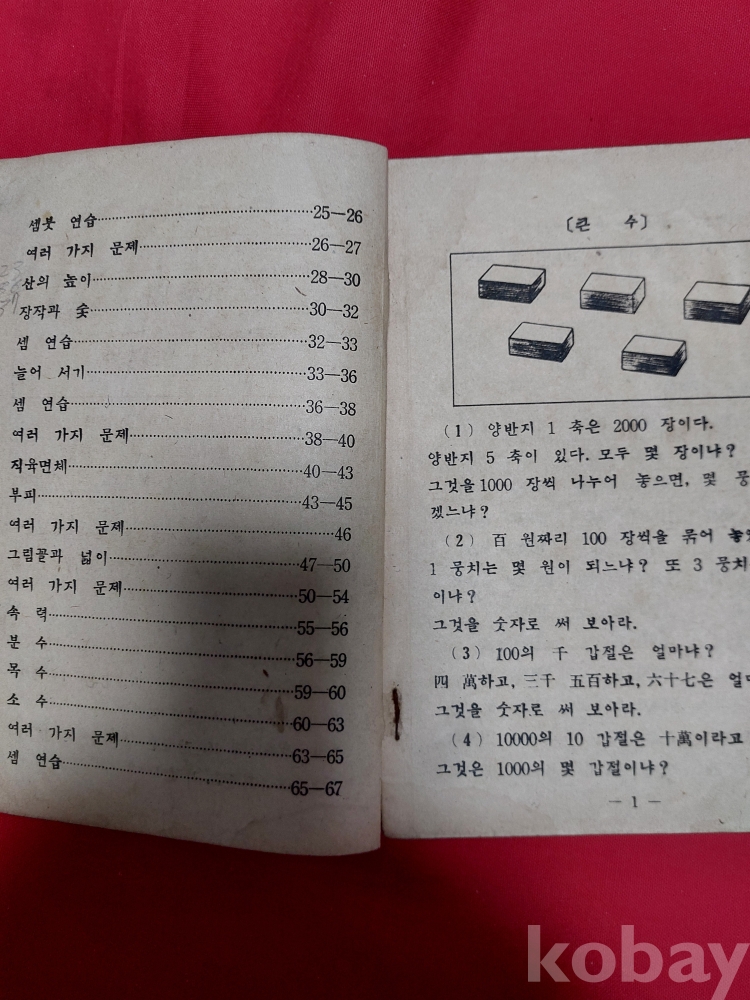 셈븟 연습 25—26
여러 가지 문제 26—27
산의 높이 28—30
장작과 숯 30—32
셈 연습 32—33
늘어 서기 33—36
셈 연습 36—38
여러 가지 문제 38—40
직육면체 40—43
부피 43—45
여러 가지 문제 46
그림꼴과 넓이 47—50
여러 가지 문제 50—54
속 력 55—56
분 수 56—59
목 수 59—60
소 수 60—63
여러 가지 문제 63—65
셈 연습 65—67
〔큰 수〕
(1) 양반지 1 축은 2000 장이다.
양반지 5 축이 있다. 모두 몇 장이냐?
그것을 1000 장씩 나누어 놓으면, 몇 뭉
겠느냐?
(2) 百 원짜리 100 장씩을 묶어 놓
1 뭉치는 몇 원이 되느냐? 또 3 뭉치
이냐?
그것을 숫자로 써 보아라.
(3) 100의 千 갑절은 얼마냐?
四 萬하고, 三千 五百하고, 六十七은 얼
그것을 숫자로 써 보아라.
(4) 10000의 10 갑절은 十萬이라고
그것은 1000의 몇 갑절이냐?
— 1 —
kobay